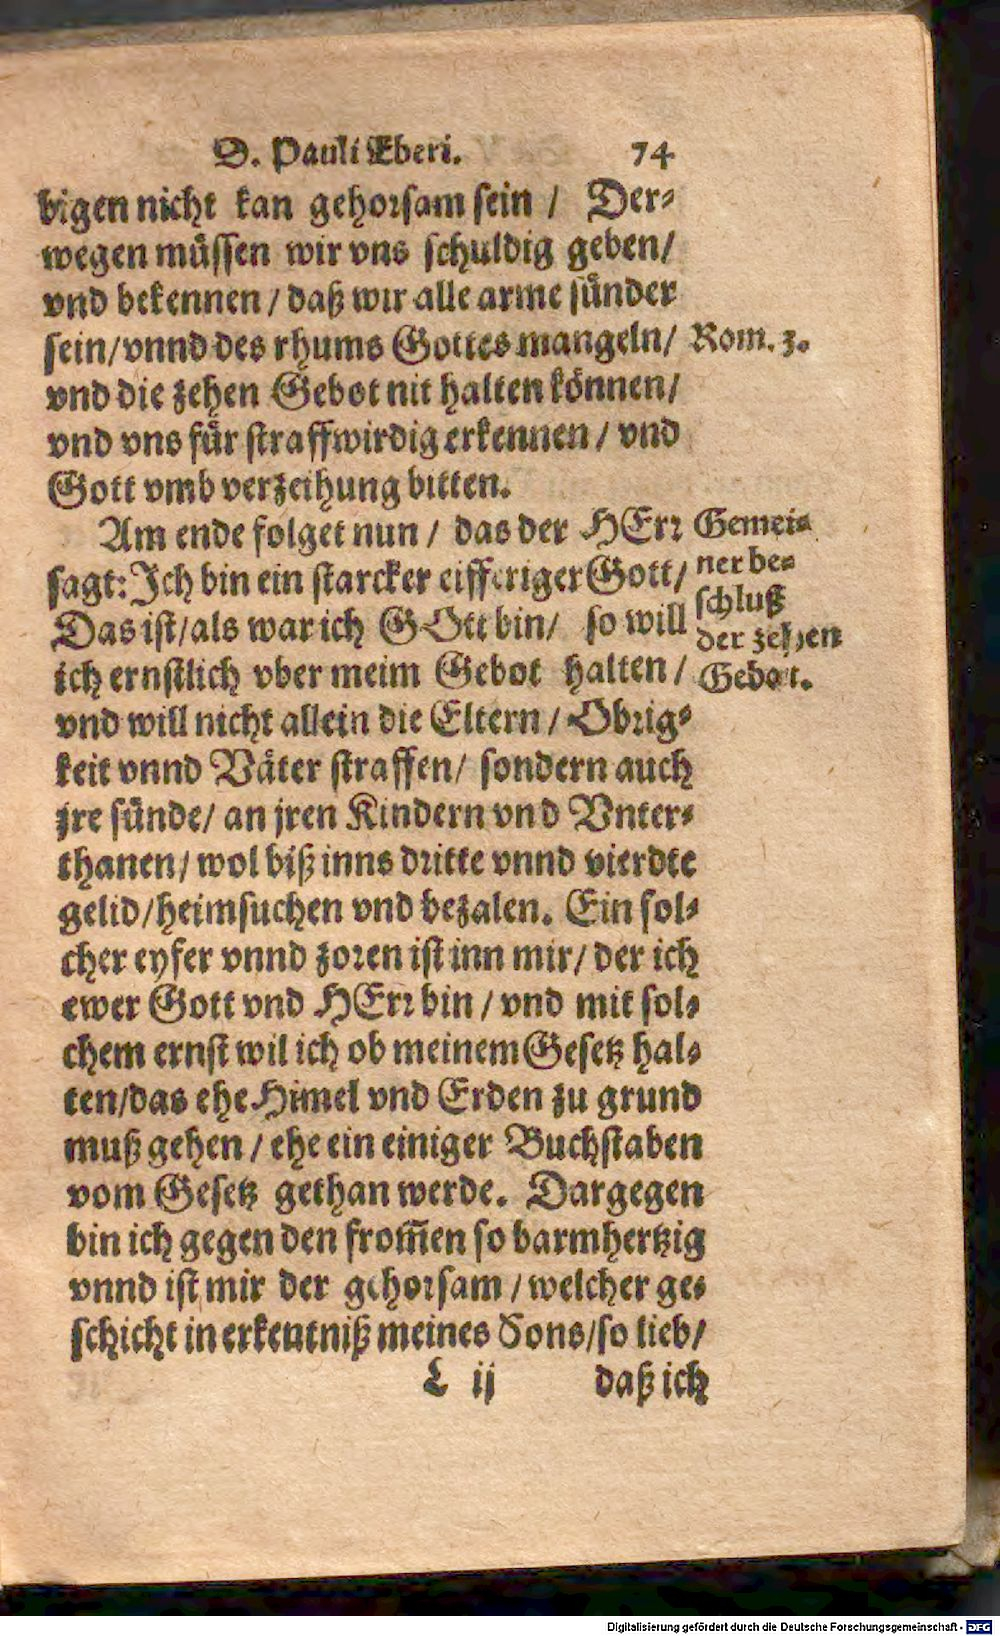 D. Pauli Eberi. 74
bigen nicht kan gehorsam sein / Der-
wegen müssen wir vns schuldig geben/
vnd bekennen / daß wir alle arme sünder
sein/vnnd des rhums Gottes mangeln/ Rom. 3.
vnd die zehen Gebot nit halten können/
vnd vns für straffwirdig erkennen / vnd
Gott vmb verzeihung bitten.
Am ende folget nun / das der HErr
sagt: Ich bin ein starcker eifferiger Gott/
Das ist/als war ich GOtt bin/ so will
ich ernstlich vber meim Gebot halten /
vnd will nicht allein die Eltern / Obrig-
keit vnnd Väter straffen/ sondern auch
jre sünde/ an jren Kindern vnd Vnter-
thanen/ wol biß inns dritte vnnd vierdte
gelid/heimsuchen vnd bezalen. Ein sol-
cher eyfer vnnd zoren ist inn mir/ der ich
ewer Gott vnd HErr bin / vnd mit sol-
chem ernst wil ich ob meinem Gesetz hal-
ten/das ehe Himel vnd Erden zu grund
muß gehen / ehe ein einiger Buchstaben
vom Gesetz gethan werde. Dargegen
bin ich gegen den from̃en so barmhertzig
vnnd ist mir der gehorsam / welcher ge-
schicht in erkentniß meines Sons/so lieb/
L ij daß ich
Gemei-
ner be-
schluß
der zehen
Gebot.
Digitalisierung gefördert durch die Deutsche Forschungsgemeinschaft - DFG